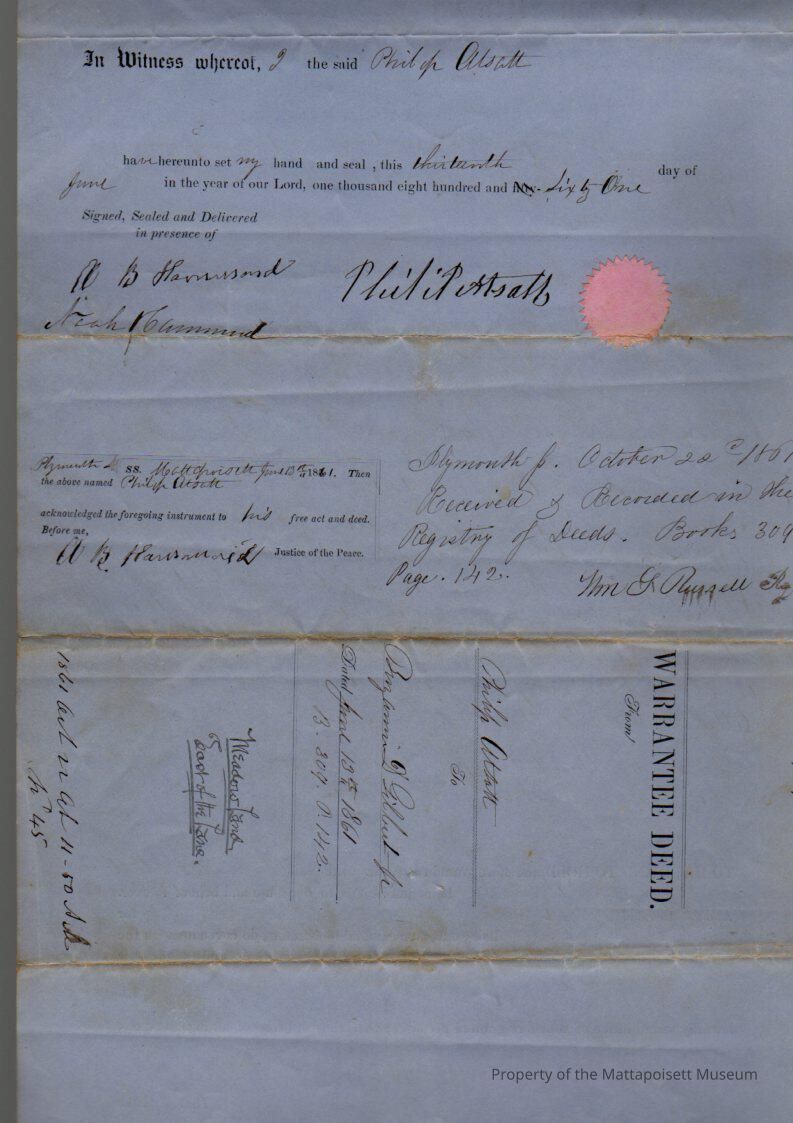 In Witness whereof, I the said Philip Atsatt
have hereunto set my hand and seal, this thirteenth day of
June in the year of our Lord, one thousand eight hundred and Sixty One
Signed, Sealed and Delivered
in presence of
B Hammond Philip Atsatt
Noah Hammond
Plymouth SS. Mattapoisett June 13th 1861. Then
the above named Philip Atsatt
acknowledged the foregoing instrument to his free act and deed.
Before me,
B Hammond Justice of the Peace.
Plymouth October 22d 1861
Received & Recorded in the
Registry of Deeds. Book 309
Page. 142.
Wm S. Russell Reg
WARRANTEE DEED.
From
Philip Atsatt
To
Benjamin Gilbert Jr
Dated June 13th 1861
B. 309. P. 142.
Meadow Land
East of the Lane.
1861 Oct 22 at 11-50 A.M.
No 45
Property of the Mattapoisett Museum